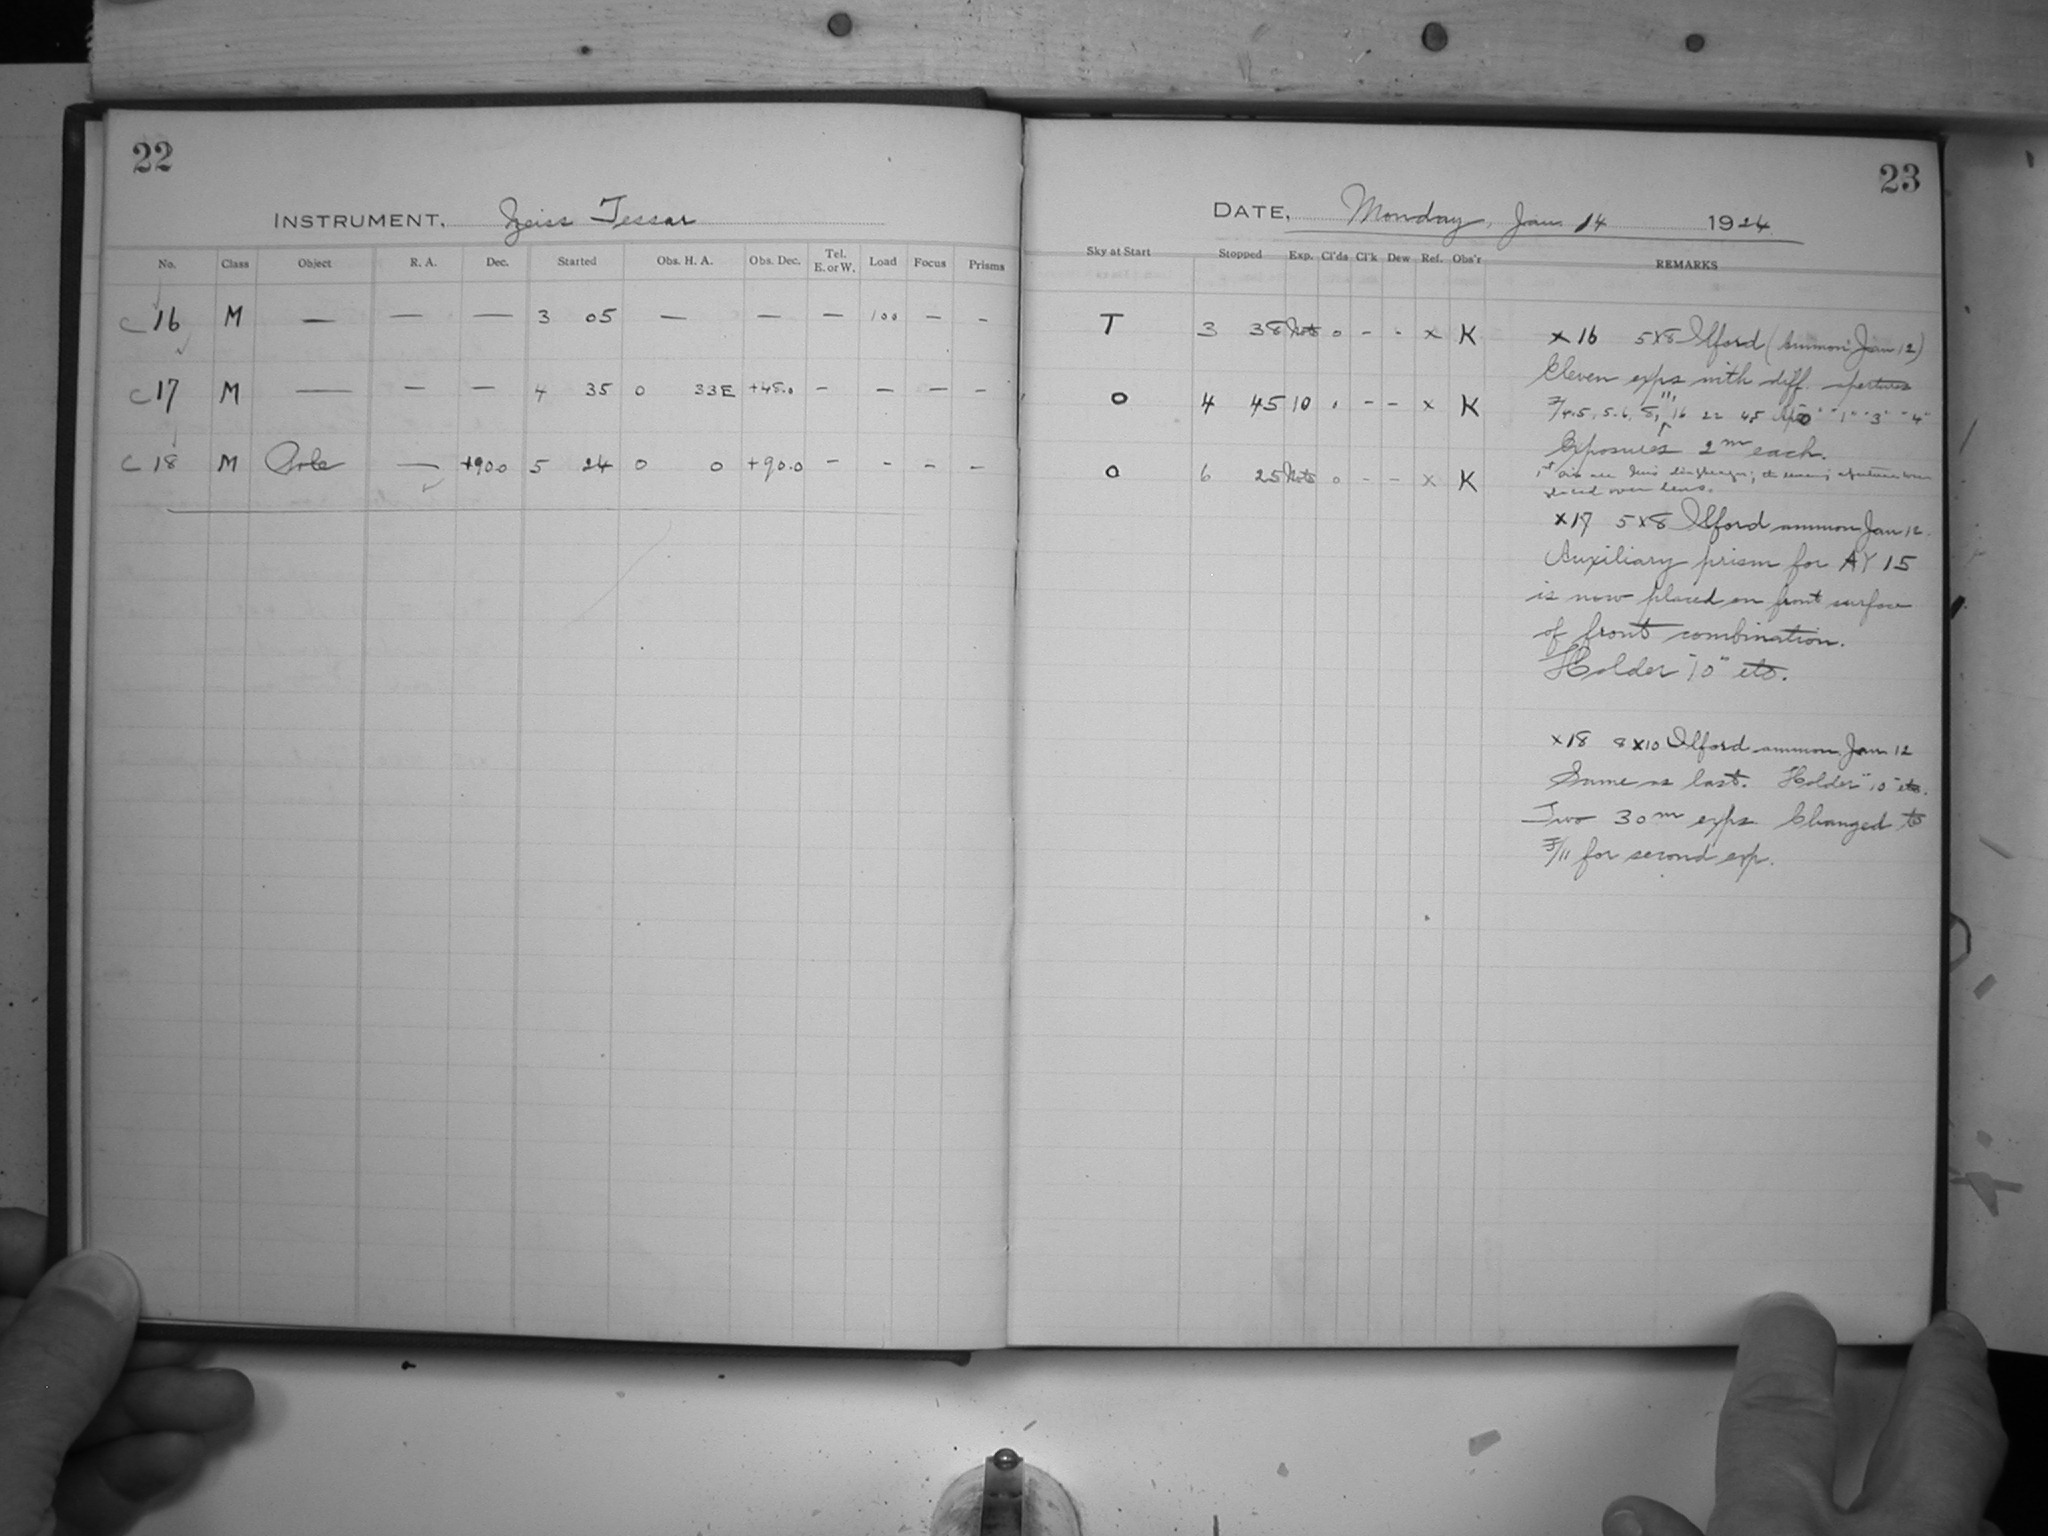 22
INSTRUMENT, Zeiss Tessar
No. Class Object R. A. Dec. Started Obs. H. A. Obs. Dec. Tel. E. or W. Load Focus Prisms
C 16 M — — — 3 05 — — — 100 — —
C 17 M — — — 4 35 0 33E +45.0 — — — —
C 18 M Pole — +90.0 5 24 0 0 +90.0 — — — —
23
DATE, Monday, Jan. 14 1924
Sky at Start Stopped Exp. Cl'ds Cl'k Dew Ref. Obs'r REMARKS
T 3 38 Note 0 - - x K
0 4 45 10 0 - - x K
0 6 25 Note 0 - - x K
x16 5x8 Ilford (ammon. Jan 12)
Eleven exps with diff. apertures
F/4.5, 5.6, 8, 11, 16 22 45
Exposures 2m each.
1st six are lens diaphragm; the remaining apertures were
placed over lens.
x17 5x8 Ilford ammon Jan 12.
Auxiliary prism for AY 15
is now placed on front surface
of front combination.
Holder "10" etc.
x18 8x10 Ilford ammon. Jan 12
Same as last. Holder "10" etc.
Two 30m exps Changed to
F/11 for second exp.